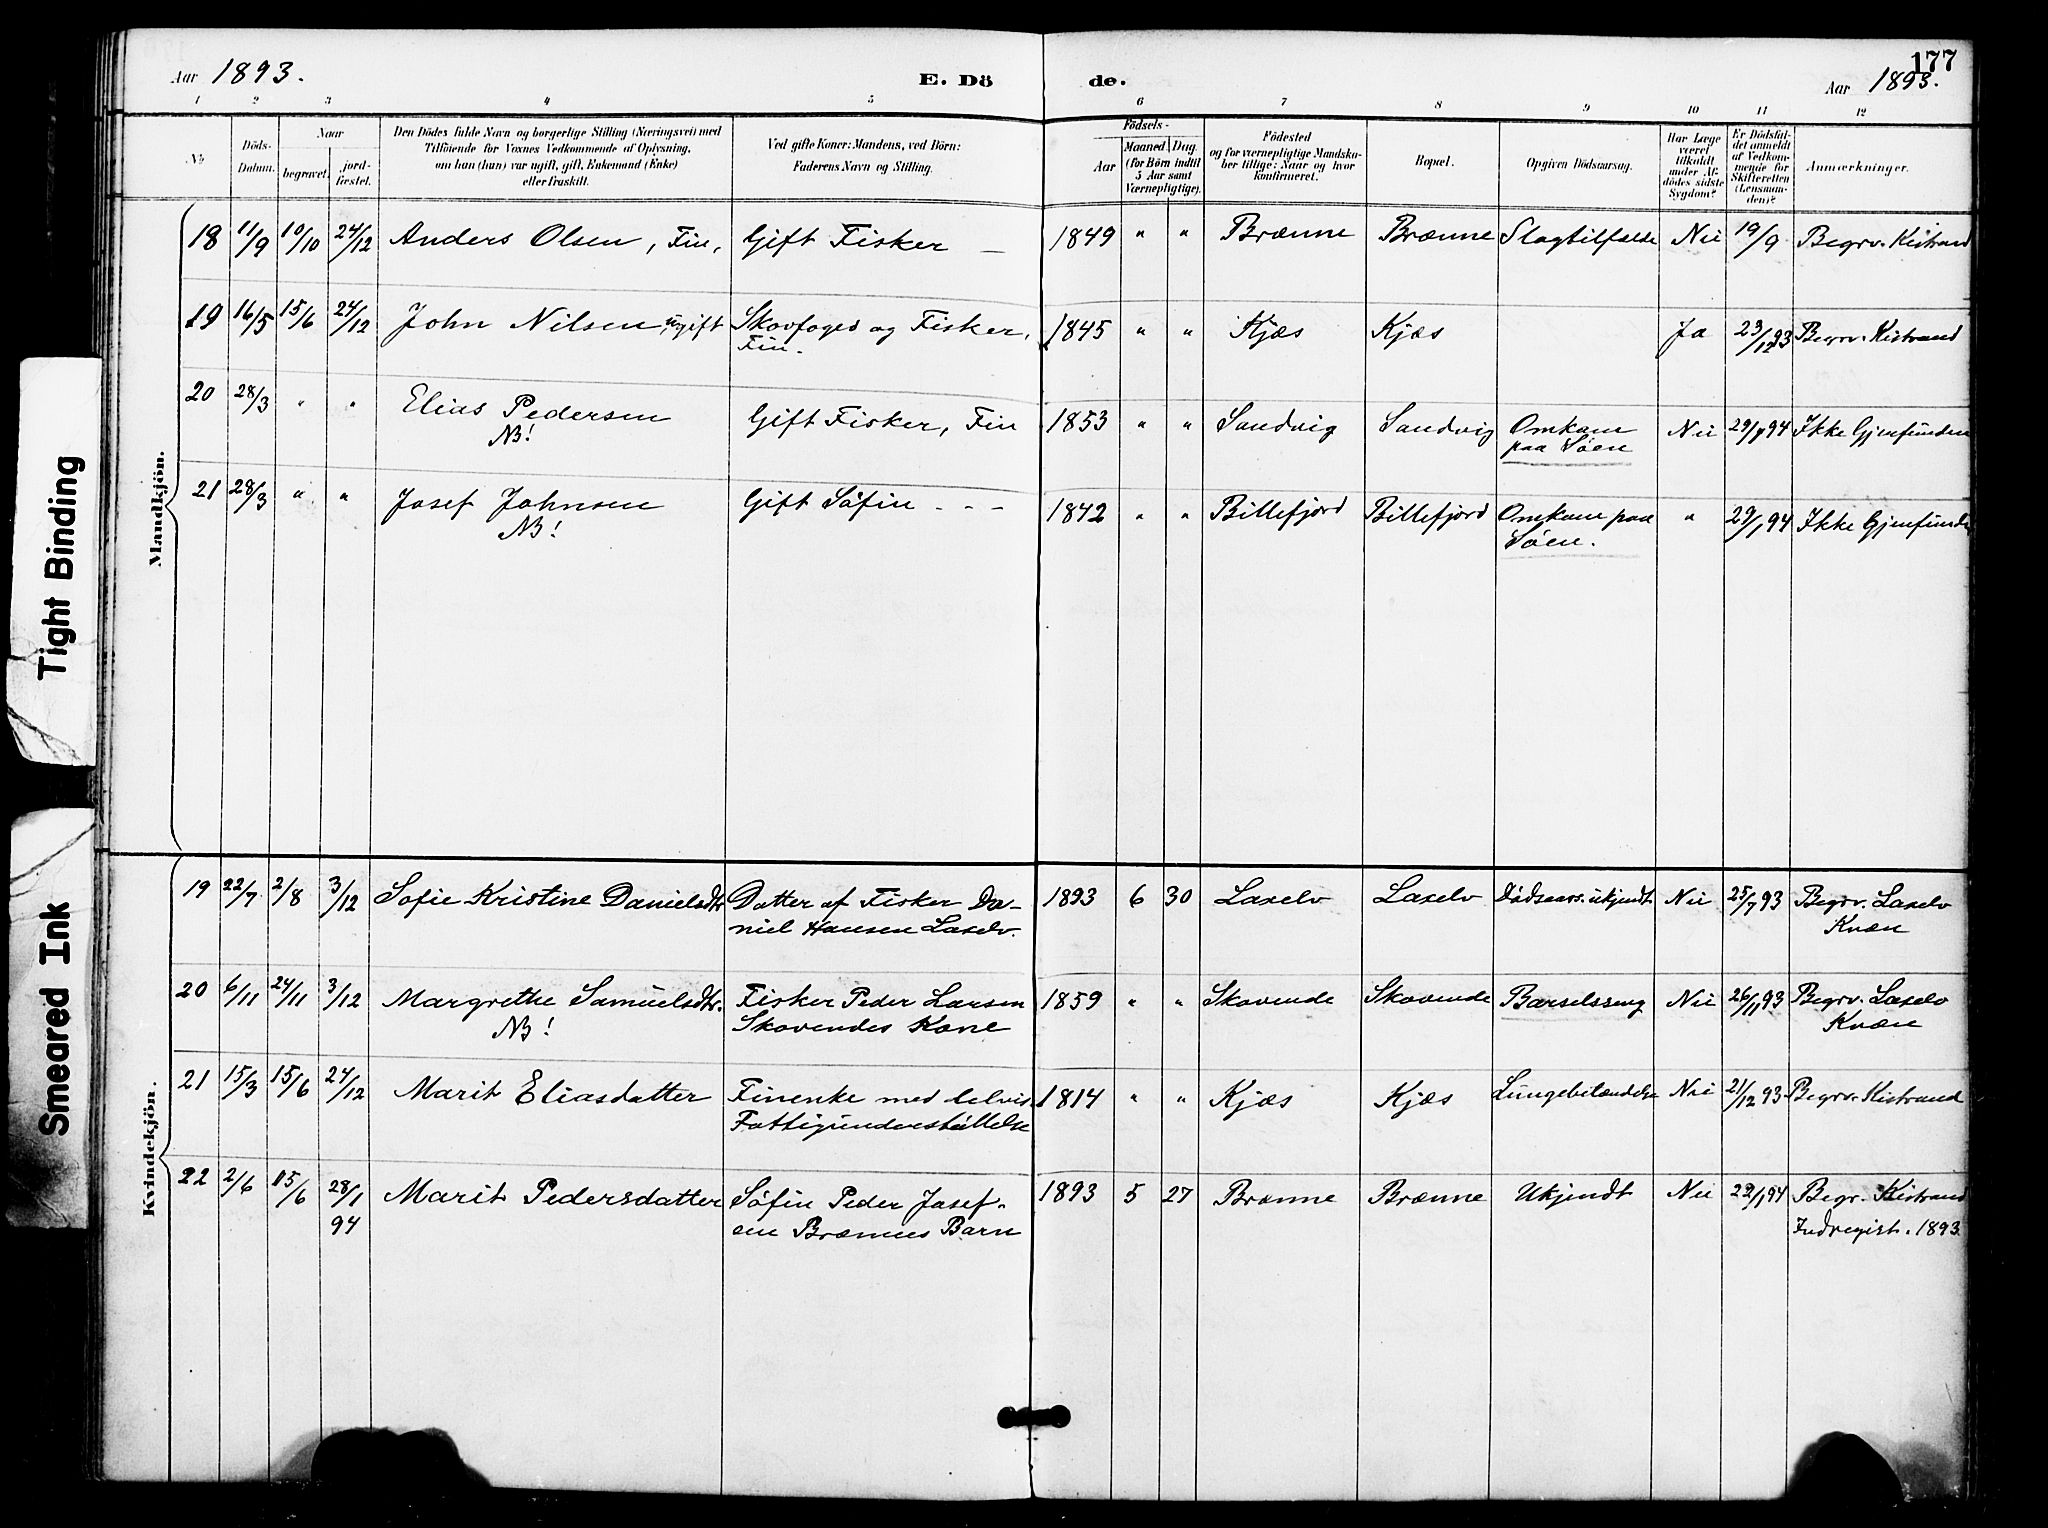 Aar 1893.
E. Dö
de.
177
Aar 1893.
1 2 3 4 5 6 7 8 9 10 11 12
No
Döds-
Datum.
Naar
begravet.
jord-
fæstet.
Den Dödes fulde Navn og borgerlige Stilling (Næringsvei) med
Tilföiende for Voxnes Vedkommende af Oplysning,
om han (hun) var ugift, gift, Enkemand (Enke)
eller fraskilt.
Ved gifte Koner: Mandens, ved Börn:
Faderens Navn og Stilling.
Födsels-
Aar
Maaned Dag
(for Börn indtil
5 Aar samt
Værnepligtige).
Födested
og for værnepligtige Mandska-
ber tillige: Naar og hvor
konfirmeret.
Bopæl.
Opgiven Dödsaarsag.
Har Læge
været
tilkaldt
under Af-
dödes sidste
Sygdom?
Er Dödsfal-
det anmeldt
af Vedkom-
mende for
Skifteretten
(Lensman-
den)?
Anmærkninger.
Mandkjön.
18 11/9 10/10 24/12 Anders Olsen, Fin, Gift Fisker — 1849 " " Brænne Brænne Slagtilfælde Nei 19/9 Begrv. Kistrand
19 16/5 15/6 24/12 John Nilsen, ugift Skovfoged og Fisker, 1845 " " Kjæs Kjæs Ja 23/12 93 Begrv. Kistrand
Fin.
20 28/3 " " Elias Pedersen Gift Fisker, Fin 1853 " " Sandvig Sandvig Omkom Nei 29/1 94 Ikke Gjenfunden
NB! paa Söen
21 28/3 " " Josef Johnsen Gift Söfin - - - 1842 " " Billefjord Billefjord Omkom paa " 29/1 94 Ikke Gjenfunde
NB! Söen.
Kvindekjön.
19 22/7 2/8 3/12 Sofie Kristine Danielsdtr Datter af Fisker Da- 1893 6 30 Laxelv Laxelv Dödsaars. ukjendt Nei 25/7 93 Begrv. Laxelv
niel Hansen Laxelv. Kvæn
20 6/11 24/11 3/12 Margrethe Samuelsdtr. Fisker Peder Larsen 1859 " " Skovende Skovende Barselsseng Nei 26/11 93 Begrv. Laxelv
NB! Skovendes Kone Kvæn
21 15/3 15/6 24/12 Marit Eliasdatter Finenke med delvis 1814 " " Kjæs Kjæs Lungebetændelse Nei 21/12 93 Begrv. Kistrand
Fattigunderstöttelse
22 2/6 15/6 28/1 94 Marit Pedersdatter Söfin Peder Josef- 1893 5 27 Brænne Brænne Ukjendt Nei 29/1 94 Begr. Kistrand
sen Brænnes Barn Indregist. 1893.
Tight Binding
Smeared Ink